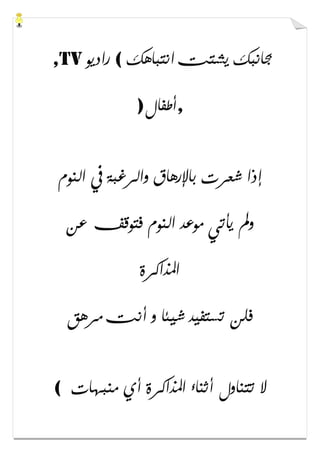 بجانبك يشتت انتباهك ( راديو TV,
,أطفال)
إذا شعرت بالإرهاق والرغبة في النوم
ولم يأتي موعد النوم فتوقف عن
المذاكرة
فلن تستفيد شيئا و أنت مرهق
لا تتناول أثناء المذاكرة أي منبهات (